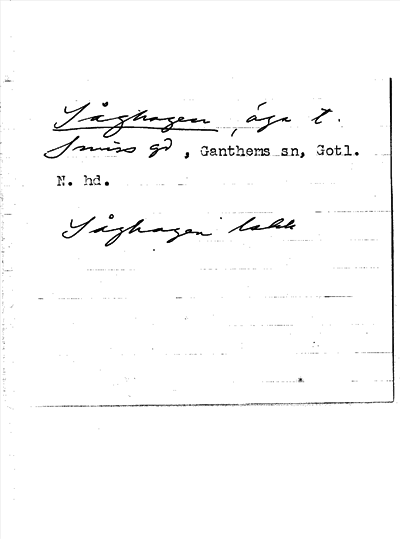 Såghagen, äga t.
Smiss gd, Ganthems sn, Gotl.
N. hd.
Såghagen lskk